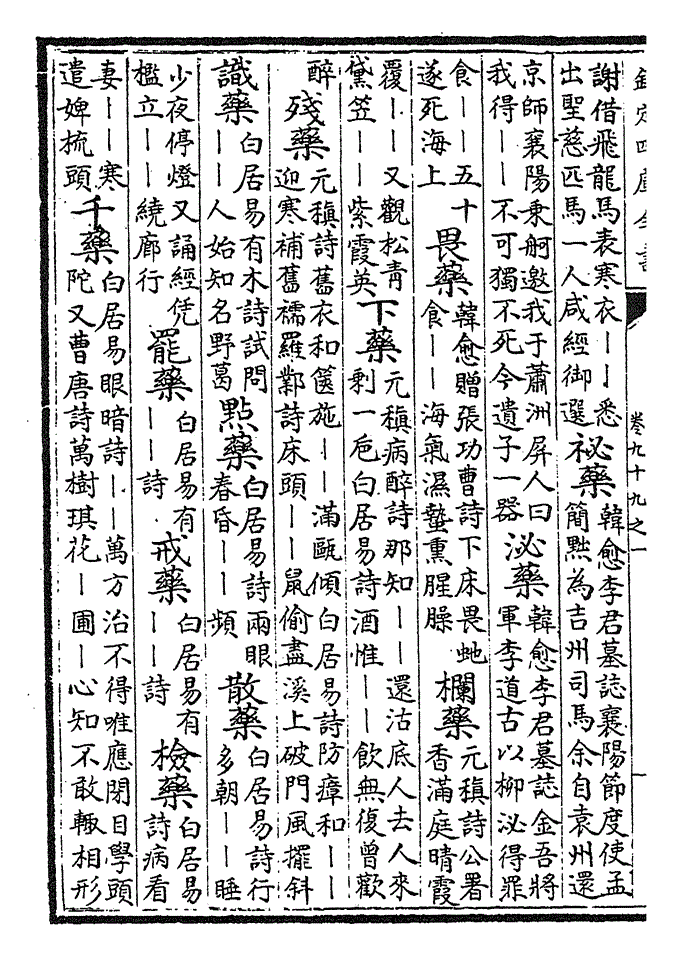 欽定四庫全書
卷九十九之一
謝借飛龍馬表寒衣——悉出聖慈匹馬一人咸經御選祕藥韓愈李君墓誌襄陽節度使孟簡㸃為吉州司馬余自袁州還
京師襄陽乗舸邀我于蕭洲屏人曰我得——不可獨不死今遺子一器泌藥韓愈李君墓誌金吾將軍李道古以柳泌得罪
食——五十遂死海上畏藥韓愈贈張功曹詩下床畏虵食——海氣濕蟄熏腥臊欄藥元稹詩公署香滿庭晴霞
覆——又觀松青黛笠——紫霞英下藥元稹病醉詩那知——還沽底人去人來剩一巵白居易詩酒惟——飲無復曾歡
醉殘藥元稹詩舊衣和篋施——滿甌傾白居易詩防瘴和——迎寒補舊襦羅鄴詩床頭——鼠偷盡溪上破門風擺斜
識藥白居易有木詩試問——人始知名野葛㸃藥白居易詩兩眼春昏——頻散藥白居易詩行多朝——睡
少夜停燈又誦經凭檻立——繞廊行罷藥白居易有——詩戒藥白居易有——詩檢藥白居易詩病看
妻——寒遣婢梳頭千藥白居易眼暗詩——萬方治不得唯應閉目學頭陀又曹唐詩萬樹琪花—圃—心知不敢輙相形